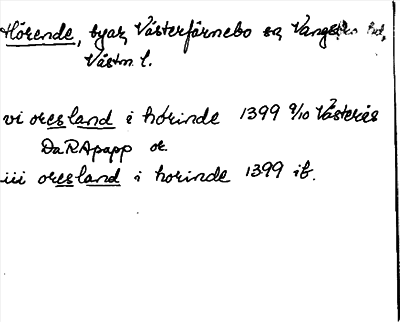 Hörende, byar, Västerfärnebo sn, Vangsbro hd,
Västm. l.
vi oresland i hörinde 1399 9/10 Västerås
DaRApapp or.
iii oresland i horinde 1399 ib.